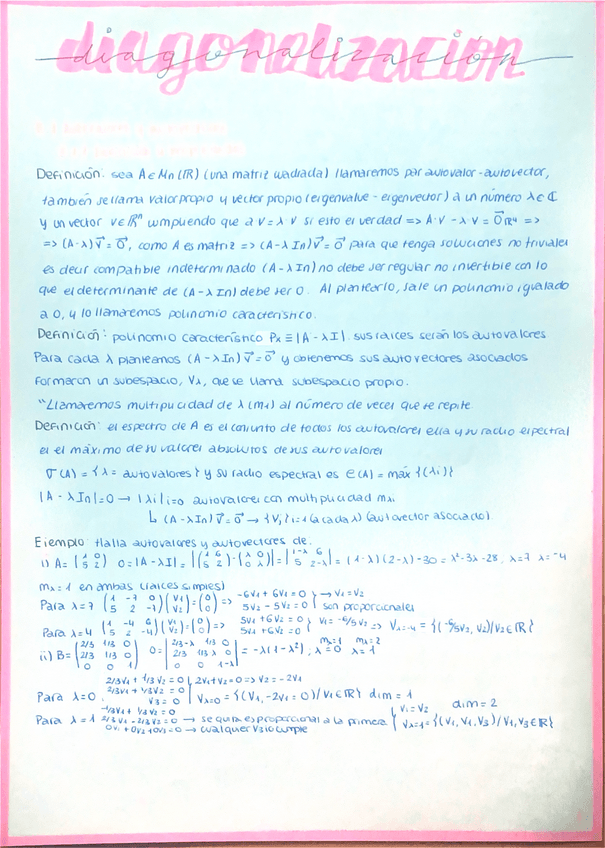 diagonalización
diagonalización
Definición: sea A ∈ Mn (ℝ) (una matriz cuadrada) llamaremos par autovalor - autovector,
también se llama valor propio y vector propio (eigenvalue - eigenvector) a un número λ ∈ ℂ
y un vector v ∈ ℝⁿ cumpliendo que a v = λ v si esto es verdad => A·v - λ v = 0⃗ =>
=> (A - λ) v⃗ = 0⃗, como A es matriz => (A - λ In) v⃗ = 0⃗ para que tenga soluciones no triviales
es decir compatible indeterminado (A - λ In) no debe ser regular no invertible con lo
que el determinante de (A - λ In) debe ser 0. Al plantearlo, sale un polinomio igualado
a 0, y lo llamaremos polinomio característico.
Definición: polinomio característico Pλ ≡ |A - λ I| sus raíces serán los autovalores
Para cada λ planteamos (A - λ In) v⃗ = 0⃗ y obtenemos sus autovectores asociados
Forman un subespacio, Vλ, que se llama subespacio propio.
"Llamaremos multiplicidad de λ (mλ) al número de veces que se repite
Definición: el espectro de A es el conjunto de todos los autovalores ella y su radio espectral
es el máximo de su valores absolutos de sus autovalores
σ (A) = { λ = autovalores } y su radio espectral es ρ(A) = máx {(λi)}
|A - λ In| = 0 → | λi | i=0 autovalores con multiplicidad mλi
↳ (A - λ In) v⃗ = 0⃗ → { Vi } i=1 (a cada λ) (autovector asociado).
Ejemplo: Halla autovalores y autovectores de:
i) A = (1 6 5 2) 0 = |A - λI| = |(1 6 5 2) - (λ 0 0 λ)| = |1-λ 6 5 2-λ| = (1-λ)(2-λ) - 30 = λ² - 3λ - 28, λ=7 λ=-4
mλ = 1 en ambas (raíces simples)
Para λ = 7 (1 -7 0 5 2 -7)(V1 V2) = (0 0) => -6V1 + 6V2 = 0 5V2 - 5V2 = 0 } → V1 = V2 son proporcionales
Para λ = 4 (1 -4 6 5 2 -4)(V1 V2) = (0 0) => 5V1 + 6V2 = 0 5V1 + 6V2 = 0 } V1 = -6/5V2 => Vλ=-4 = {(-6/5V2, V2)/V2 ∈ ℝ}
ii) B = (2/3 1/3 0 2/3 1/3 0 0 0 1) 0 = |2/3-λ 1/3 0 2/3 1/3 λ 0 0 0 1-λ| = -λ(1-λ²), mλ=1 λ = 0 mλ=2 λ = 1
Para λ = 0. 2/3V1 + 1/3 V2 = 0 2/3V1 + 1/3V2 = 0 V3 = 0 | 2V1 + V2 = 0 => V2 = -2V1 Vλ=0 = {(V1, -2V1 = 0)/V1 ∈ ℝ} dim = 1
Para λ = 1 -1/3V1 + 1/3 V2 = 0 2/3 V1 - 2/3V2 = 0 → se quita es proporcional a la primera 0V1 + 0V2 + 0V3 = 0 → cualquier V3 lo cumple { V1 = V2 Vλ=1 = {(V1, V1, V3) / V1, V3 ∈ ℝ} dim = 2